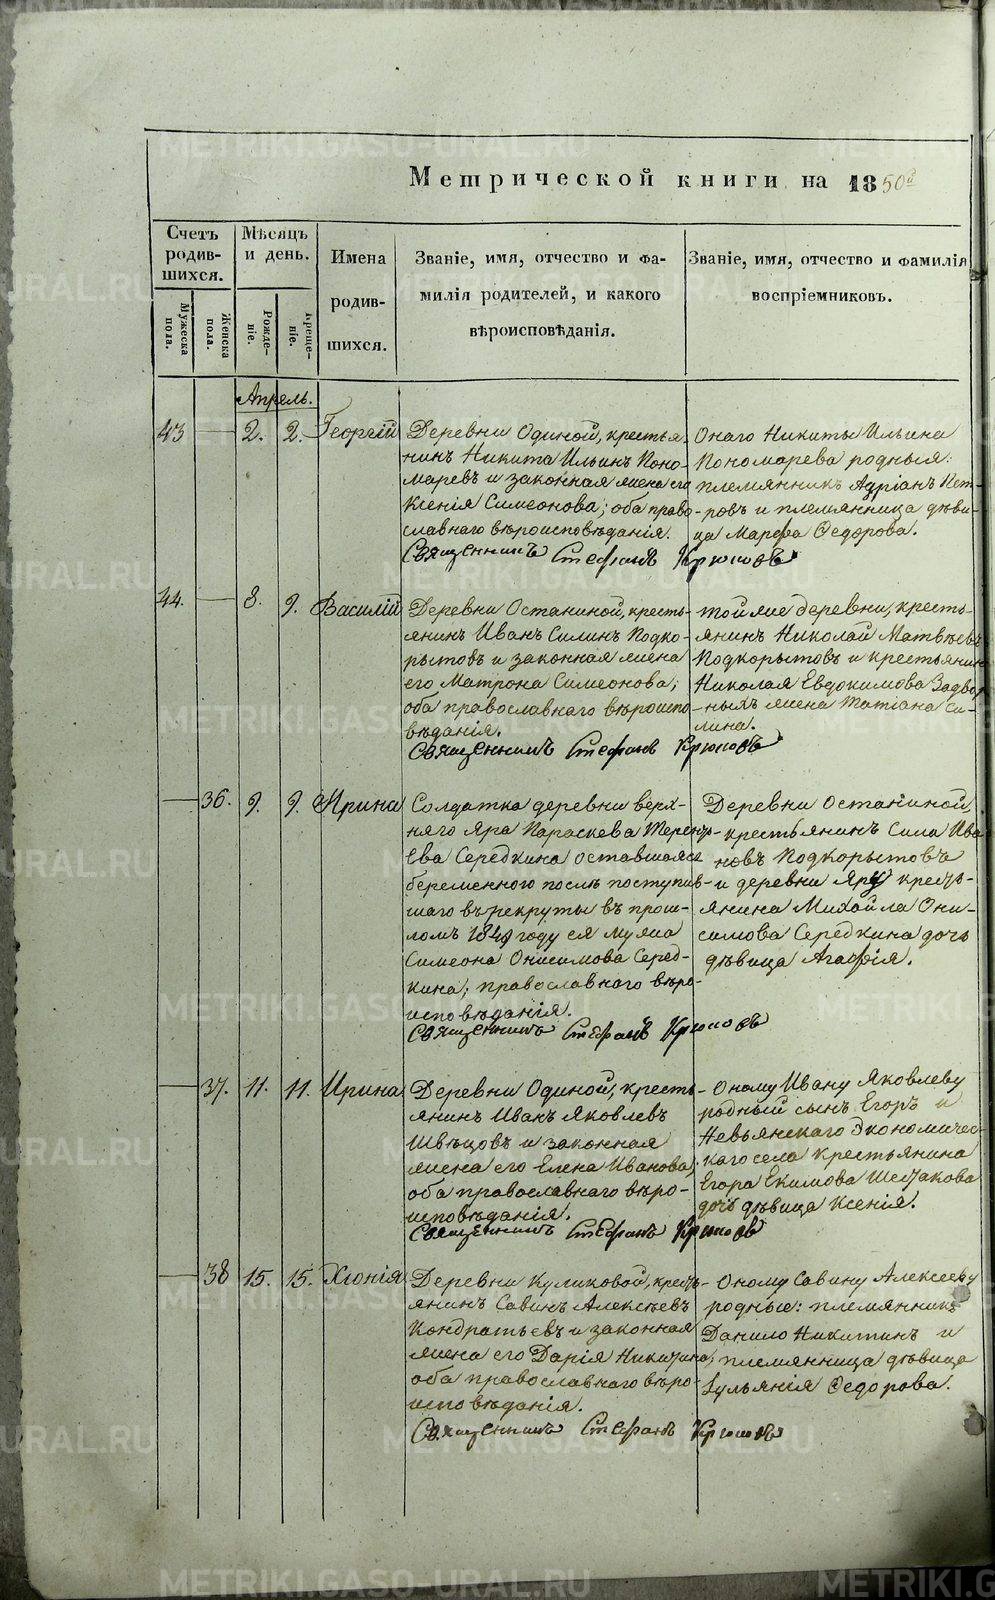 Метрической книги на 1850й
Счетъ родив- шихся.
Мѣсяцъ и день.
Мужеска пола.
Женска пола.
Рожде- ніе.
Креще- ніе.
Имена родив- шихся.
Званіе, имя, отчество и фа-
милія родителей, и какого
вѣроисповѣданія.
Званіе, имя, отчество и фамилія
воспріемниковъ.
Апрель.
43 2. 2. Георгій
Деревни Одиной, крестья-
нинъ Никита Ильинъ Поно-
маревъ и законная жена его
Ксенія Симеонова; оба право-
славнаго вѣроисповѣданія.
Онаго Никиты Ильина
Пономарева родныя:
племянникъ Адріанъ Пет-
ровъ и племянница дѣви-
ца Марфа Федорова.
Священникъ Стефанъ Крюковъ
44. 8. 9. Василій
Деревни Останиной, кресть-
янинъ Иванъ Силинъ Подко-
рытовъ и законная жена
его Матрона Симеонова;
оба православнаго вѣроиспо-
вѣданія.
Той же деревни, кресть-
янинъ Николай Матвѣевъ
Подкорытовъ и крестьянина
Николая Евдокимова Задвор-
ныхъ жена Татіана Си-
лина.
Священникъ Стефанъ Крюковъ
36. 9. 9. Ирина
Солдатка деревни верх-
няго Яра Параскева Терентье-
ева Середкина оставшаяся
беременною послѣ поступив-
шаго въ рекруты въ прош-
ломъ 1849 году ея мужа
Симеона Онисимова Серед-
кина; православнаго вѣро-
исповѣданія.
Деревни Останиной
крестьянинъ Сила Ива-
новъ Подкорытовъ
и деревни Яру кресть-
янина Михайла Они-
симова Середкина дочь
дѣвица Агафія.
Священникъ Стефанъ Крюковъ
37. 11. 11. Ирина
Деревни Одиной, кресть-
янинъ Иванъ Яковлевъ
Швѣцовъ и законная
жена его Елена Иванова;
оба православнаго вѣро-
исповѣданія.
Оному Ивану Яковлеву
родный сынъ Егоръ и
Невьянскаго Экономичес-
каго села крестьянина
Егора Екимова Шестакова
дочь дѣвица Ксенія.
Священникъ Стефанъ Крюковъ
38 15. 15. Хіонія
Деревни Куликовой, кресть-
янинъ Савинъ Алексѣевъ
Кондратьевъ и законная
жена его Дарія Никитина;
оба православнаго вѣро-
исповѣданія.
Оному Савину Алексееву
родные: племянникъ
Данило Никитинъ и
племянница дѣвица
Іульянія Федорова.
Священникъ Стефанъ Крюковъ
METRIKI.GASO-URAL.RU